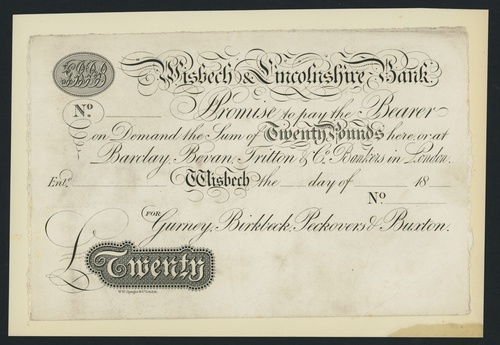 Wisbech & Lincolnshire Bank
No. I Promise to pay the Bearer
on Demand the Sum of Twenty Pounds here or at
Barclay, Bevan, Tritton & Co. Bankers in London.
Ent. Wisbech the day of 18
No.
FOR Gurney, Birkbeck, Peckovers & Buxton.
£ Twenty